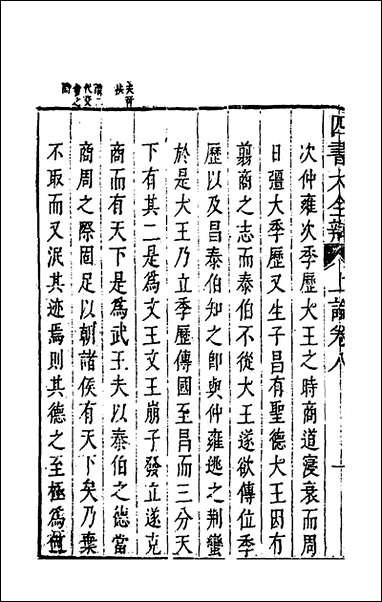 四書大全辯 上論卷八 一
次仲雍次季歷大王之時商道寖衰而周
日彊大季歷又生子昌有聖德大王因有
翦商之志而泰伯不從大王遂欲傳位季
歷以及昌泰伯知之卽與仲雍逃之荆蠻
於是大王乃立季歷傳國至昌而三分天
下有其二是爲文王文王崩子發立遂克
商而有天下是爲武王夫以泰伯之德當
商周之際固足以朝諸侯有天下矣乃棄
不取而又泯其迹焉則其德之至極爲何